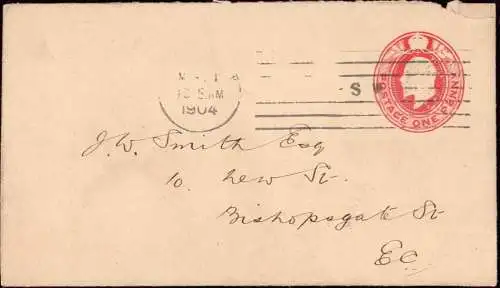 POSTAGE ONE PENNY
12 15 AM
1904
S
J. W. Smith Esq
10. New St.
Bishopsgate St
E C.